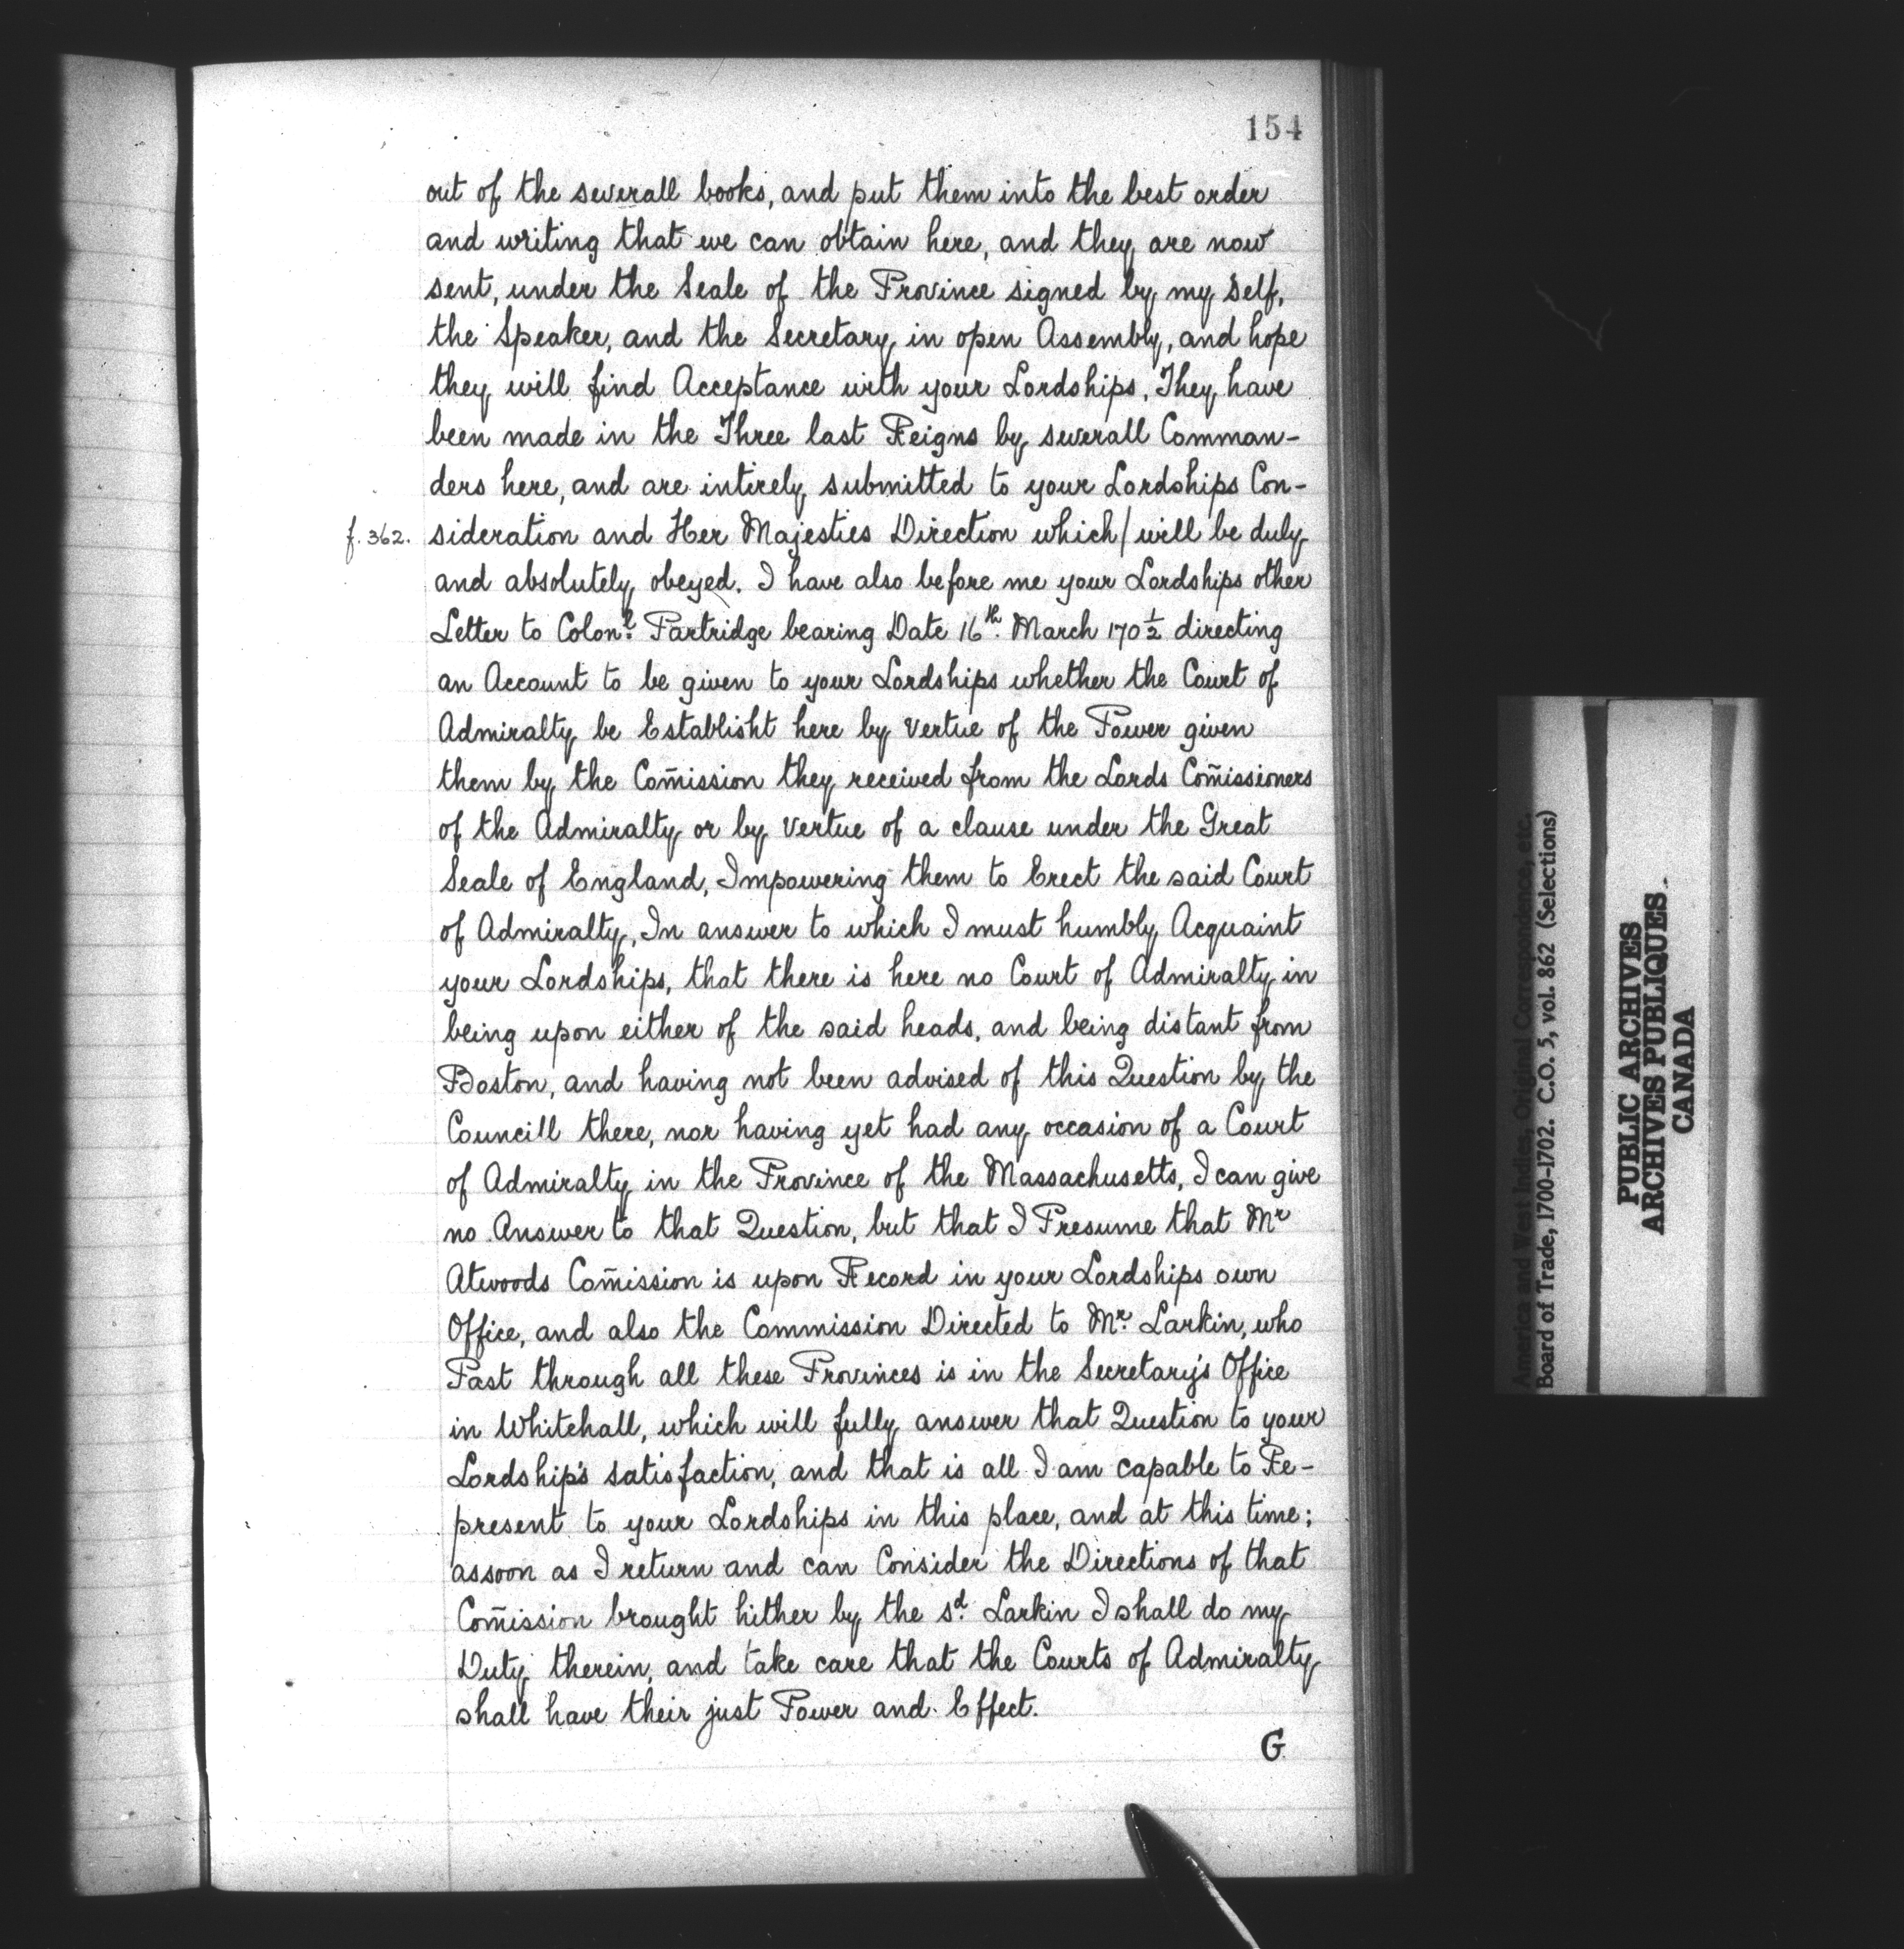 154
out of the severall books, and put them into the best order
and writing that we can obtain here, and they are now
sent, under the Seale of the Province signed by my self,
the Speaker, and the Secretary in open Assembly, and hope
they will find Acceptance with your Lordships, They have
been made in the Three last Reigns by severall Comman-
ders here, and are intirely submitted to your Lordships Con-
f. 362. sideration and Her Majesties Direction which/ will be duly
and absolutely obeyed. I have also before me your Lordships other
Letter to Colonl. Partridge bearing Date 16th. March 170½ directing
an Account to be given to your Lordships whether the Court of
Admiralty be Establisht here by vertue of the Power given
them by the Com̃ission they received from the Lords Com̃issioners
of the Admiralty or by vertue of a clause under the Great
Seale of England, Impowering them to Erect the said Court
of Admiralty, In answer to which I must humbly Acquaint
your Lordships, that there is here no Court of Admiralty in
being upon either of the said heads, and being distant from
Boston, and having not been advised of this Question by the
Councill there, nor having yet had any occasion of a Court
of Admiralty in the Province of the Massachusetts, I can give
no Answer to that Question, but that I Presume that Mr
Atwoods Com̃ission is upon Record in your Lordships own
Office, and also the Commission Directed to Mr. Larkin, who
Past through all these Provinces is in the Secretary's Office
in Whitehall, which will fully answer that Question to your
Lordship's satisfaction, and that is all I am capable to Re-
present to your Lordships in this place, and at this time;
assoon as I return and can Consider the Directions of that
Com̃ission brought hither by the sd. Larkin I shall do my
Duty therein, and take care that the Courts of Admiralty
shall have their just Power and Effect.
G
America and West Indies, Original Correspondence, etc.
Board of Trade, 1700-1702. C.O. 5, vol. 862 (Selections)
PUBLIC ARCHIVES
ARCHIVES PUBLIQUES
CANADA